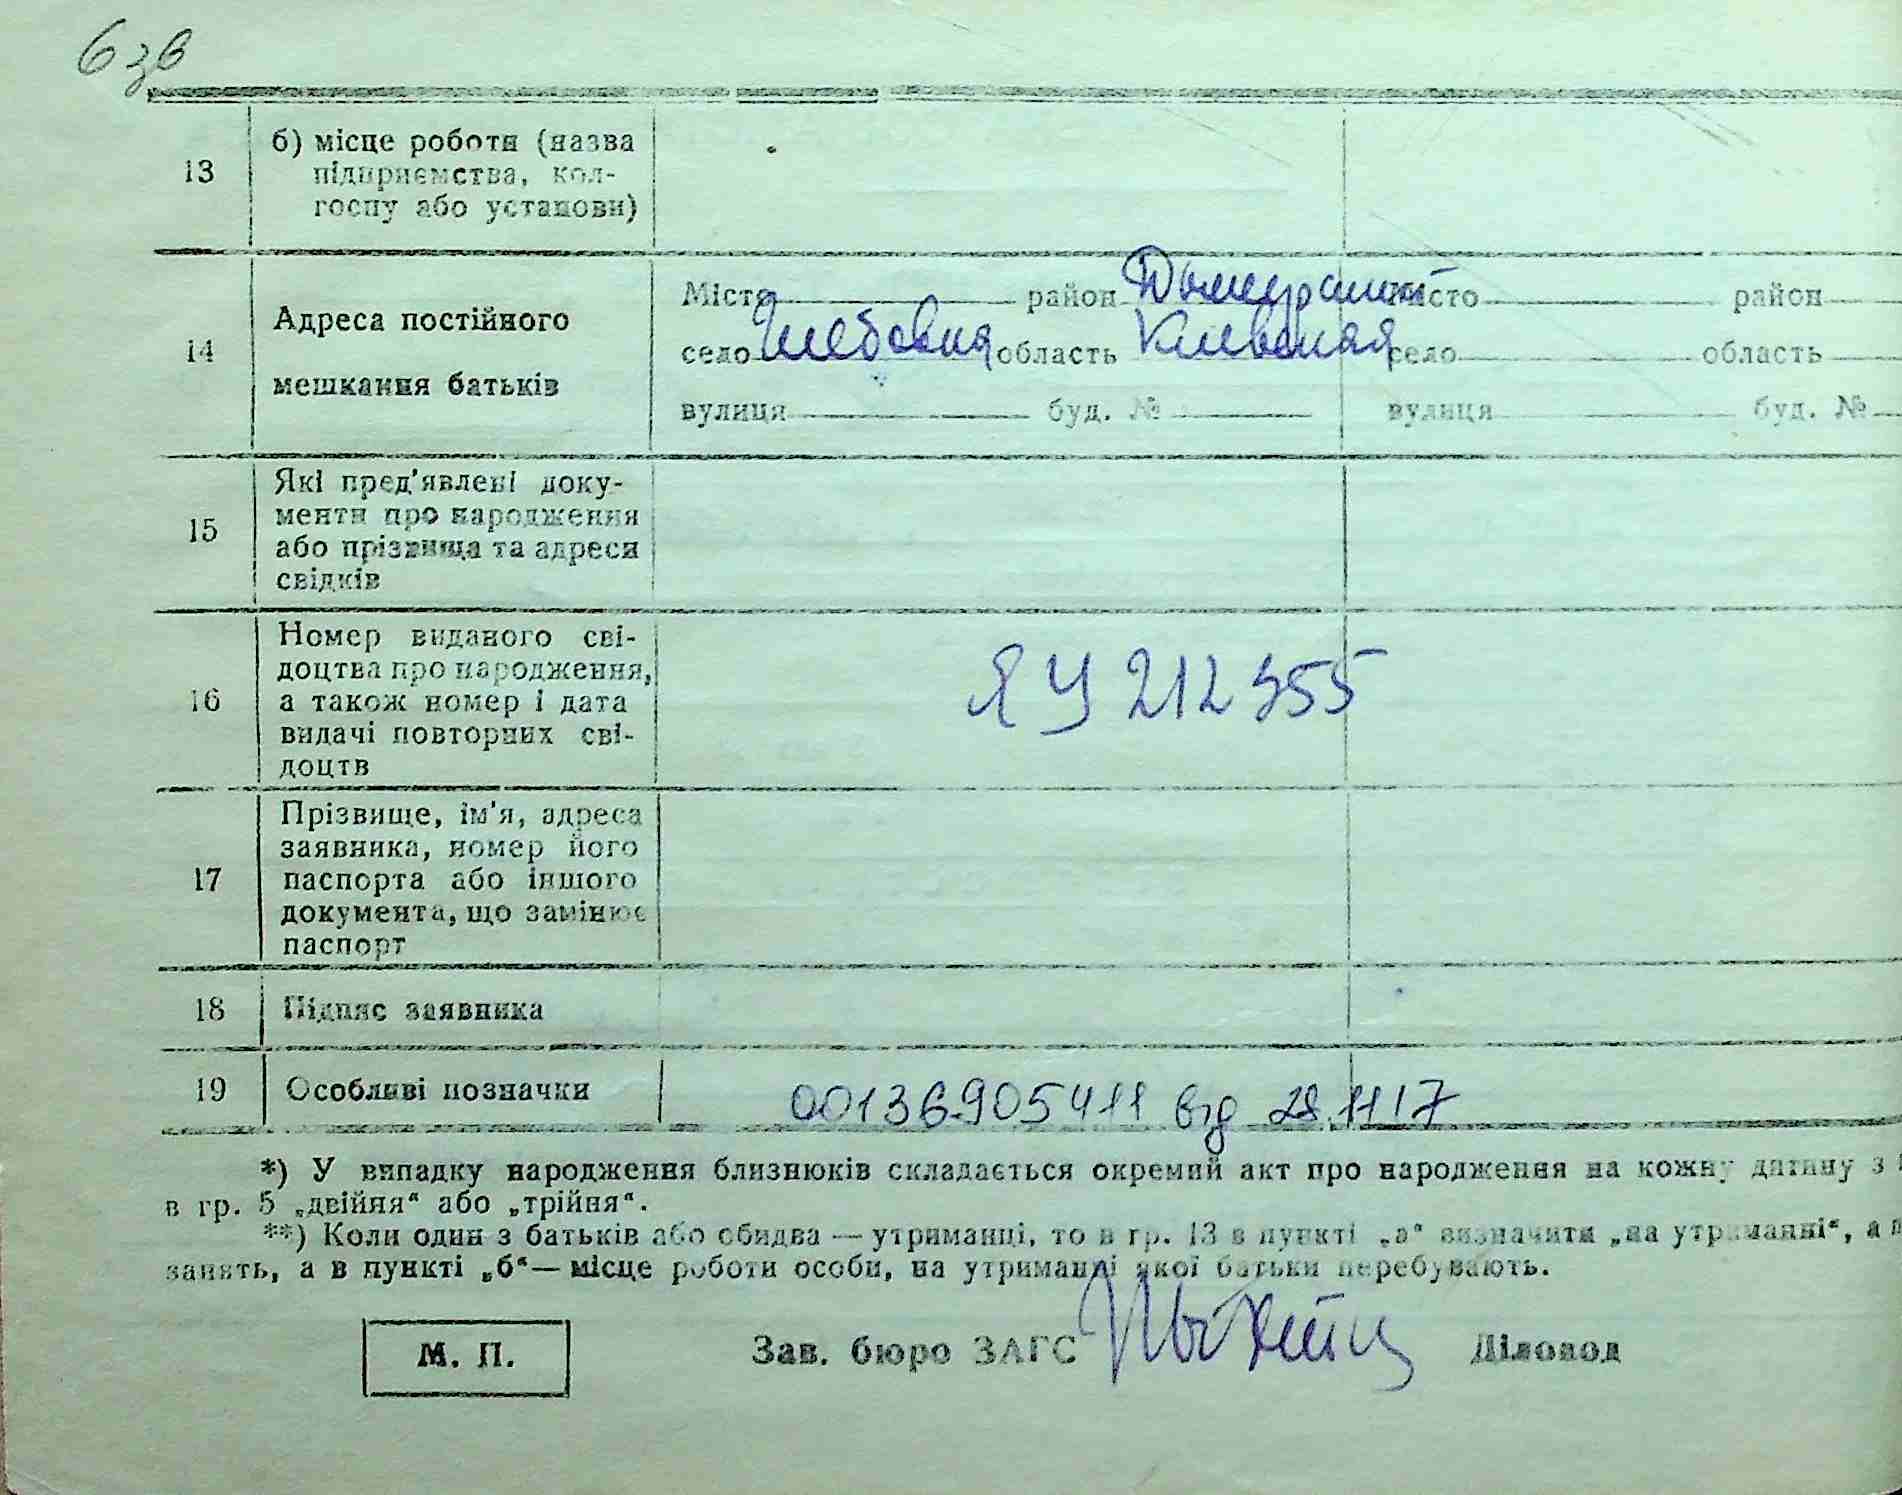 6 зв
13
б) місце роботи (назва
підприємства, кол-
госпу або установи)
14
Адреса постійного
мешкання батьків
Місто район місто район
село область Киевская село область
вулиця буд. № вулиця буд. №
15
Які пред'явлені доку-
менти про народження
або прізвища та адреси
свідків
16
Номер виданого сві-
доцтва про народження,
а також номер і дата
видачі повторних сві-
доцтв
ЯУ 212355
17
Прізвище, ім'я, адреса
заявника, номер його
паспорта або іншого
документа, що замінює
паспорт
18
Підпис заявника
19
Особливі позначки
00136905411 від 28.11 17
*) У випадку народження близнюків складається окремий акт про народження на кожну дитину з
в гр. 5 „двійня“ або „трійня“.
**) Коли один з батьків або обидва — утриманці, то в гр. 13 в пункті „а“ визначити „на утриманні“, а
занять, а в пункті „б“ — місце роботи особи, на утриманні якої батьки перебувають.
М. П.
Зав. бюро ЗАГС Діловод